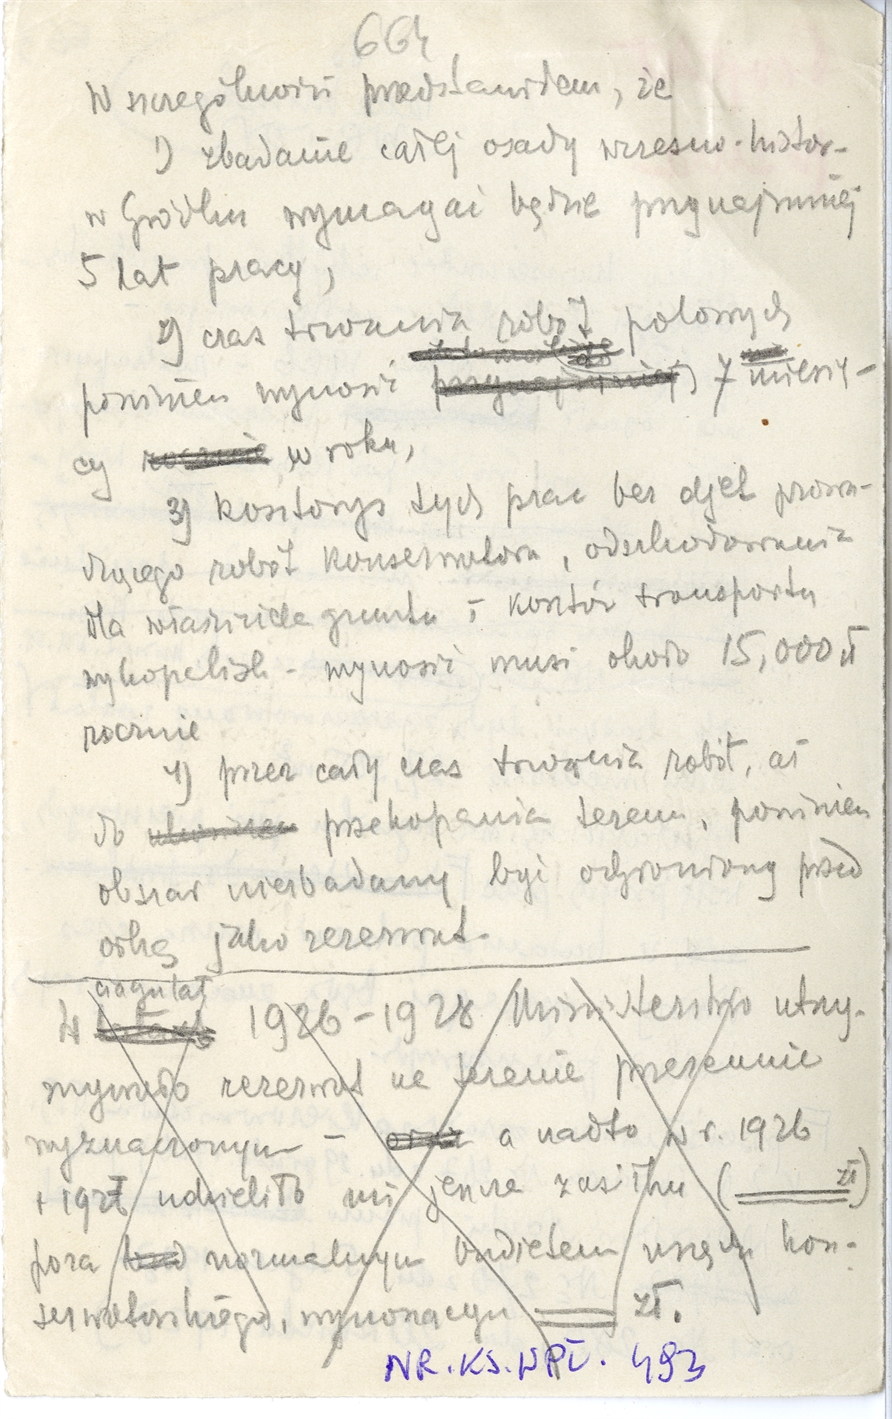 664
W szczególności przedstawiłem, że
1) zbadanie całej osady wczesno-histor-
w Gródku wymagać będzie przynajmniej
5 lat pracy,
2) czas trwania robót polowych
powinien wynosić 7 miesię-
cy w roku,
3) kosztorys tych prac bez djet prowa-
dzącego robót konserwatora, odszkodowania
dla właściciela gruntu i kosztów transportu
wykopalisk - wynosić musi około 15,000 zł
rocznie
4) przez cały czas trwania robót, aż
do przekopania terenu, powinien
obszar niezbadany być ochroniony przed
orką jako rezerwat.
ciągu lat
W 1926-1928 Ministerstwo utrzy-
mywało rezerwat na terenie przezemnie
wyznaczonym - oraz a nadto w r. 1926
i 1927 udzieliło mi jeszcze zasiłku (____ zł)
poza normalnym budżetem urzędu kon-
serwatorskiego, wynoszącym ___ zł.
NR. KS. WPŁ. 493